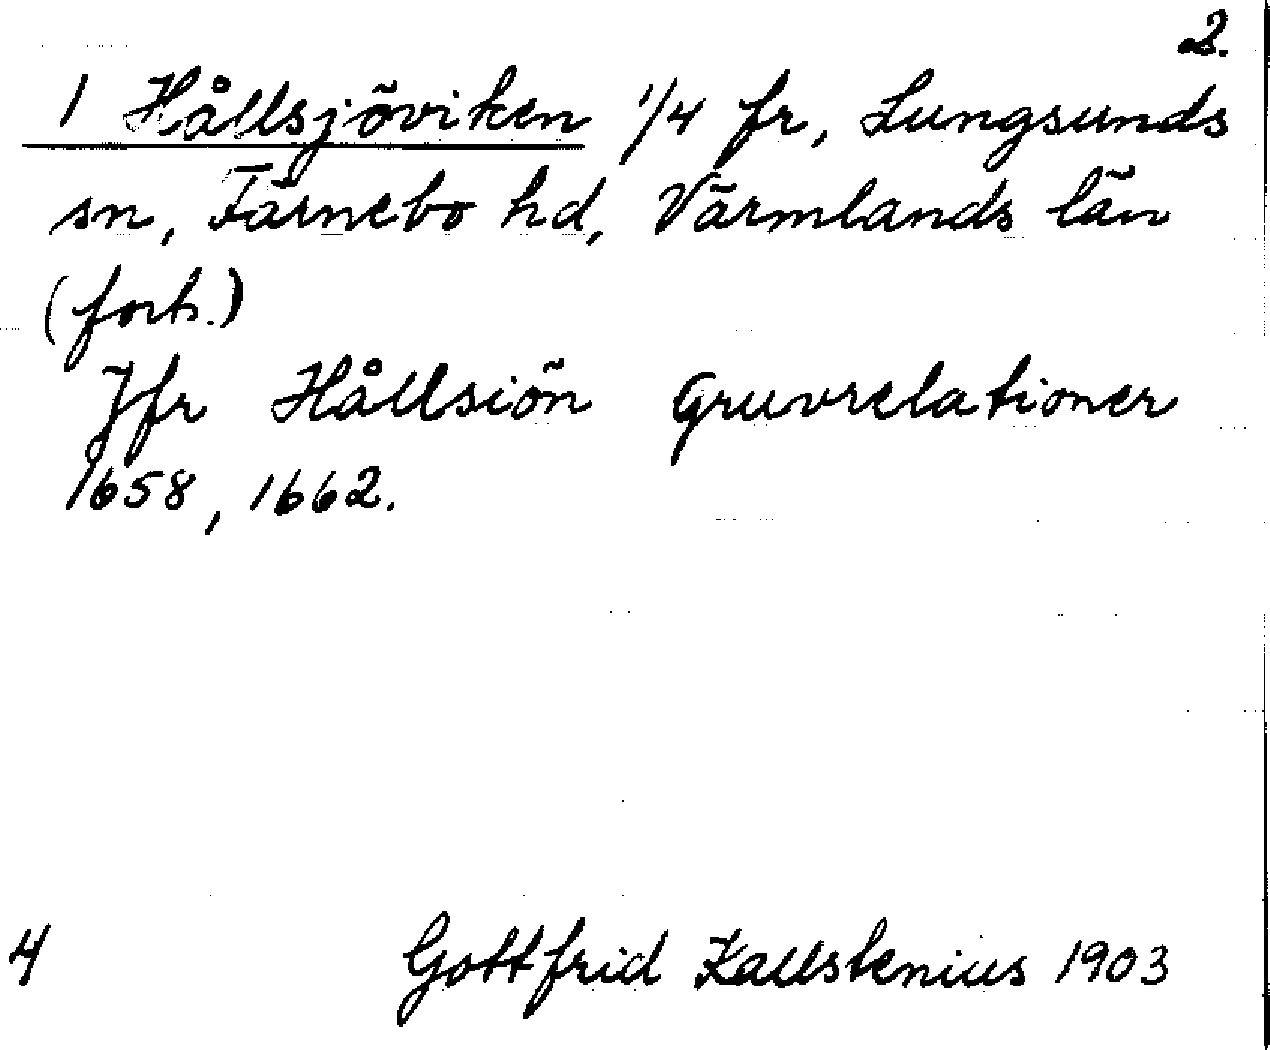 2.
1 Hållsjöviken 1/4 fr, Lungsunds
sn, Färnebo hd, Värmlands län
(forts.)
Jfr Hållsiön Gruvrelationer
1658, 1662.
4 Gottfrid Kallstenius 1903